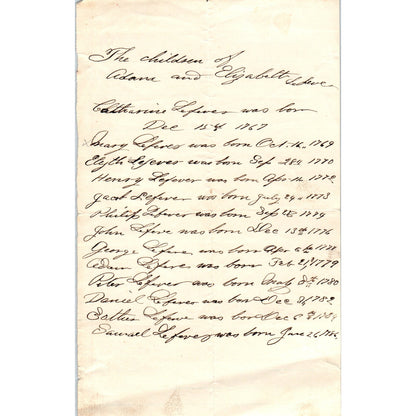 The children of
Adam and Elizabeth Lefever
Catharine Lefever was born
Dec 15th 1767
Mary Lefever was born Oct. 16, 1769
Lefever was born Sep 1770
Henry Lefever was born Apr 1772
Jacob Lefever was born July 1773
Philip Lefever was born Sep
John Lefeve was born Dec 13th 1776
George Lefever was born Apr 1778
Adam Lefever was born Feb 21st 1779
Peter Lefever was born 1780
Daniel Lefever was born Dec 1782
Lefever was born Dec
Samuel Lefever was born June 26 1786